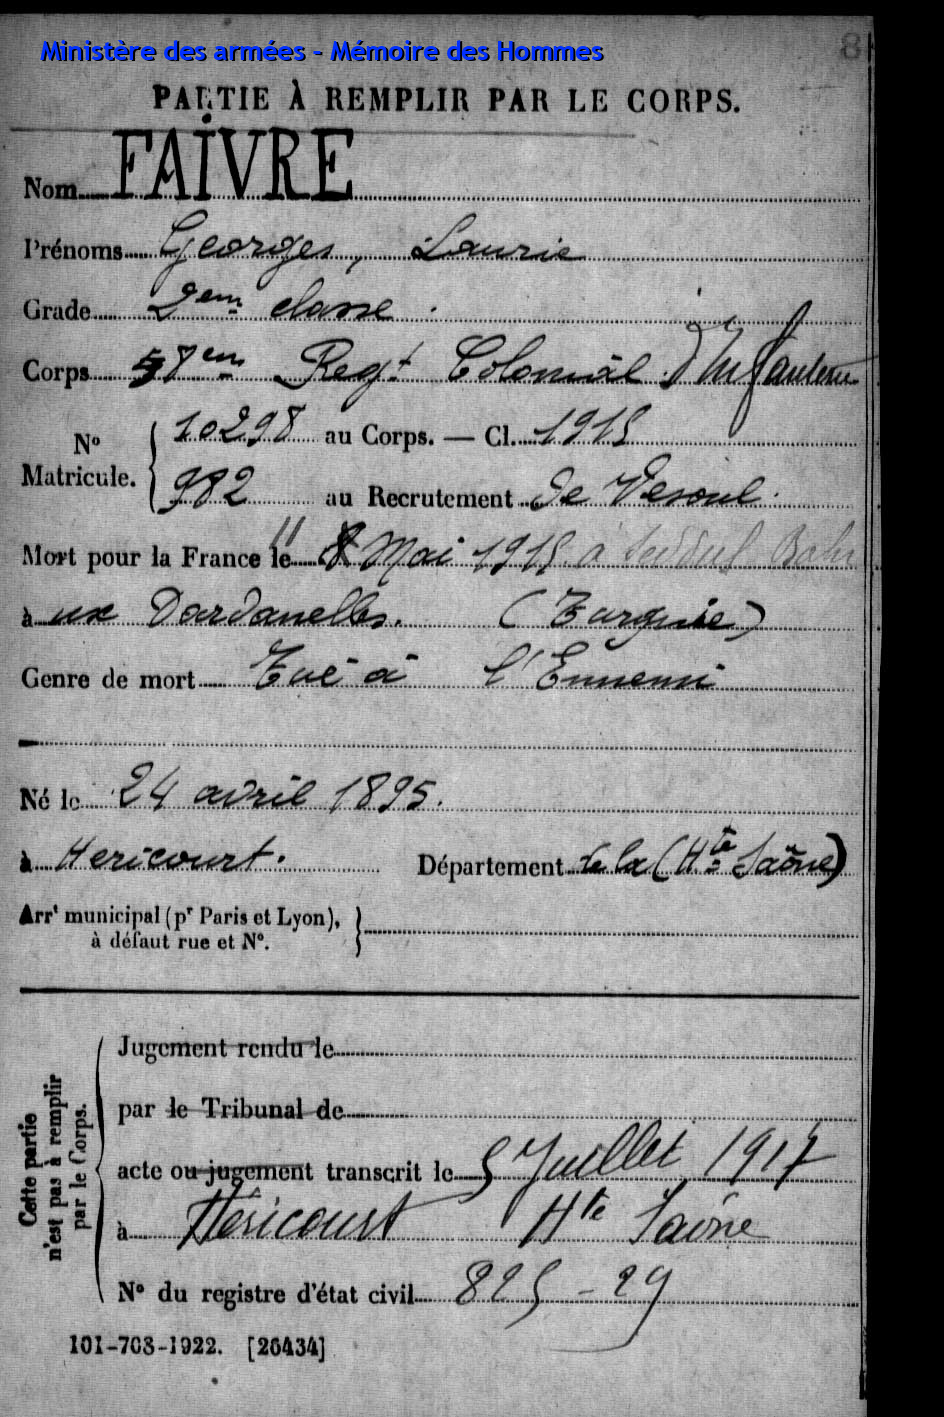 Ministère des armées - Mémoire des Hommes
8
PARTIE À REMPLIR PAR LE CORPS.
Nom FAIVRE
Prénoms Georges, Laurie
Grade 2em classe.
Corps 58em Regt Colonial d'Infanterie
N° Matricule. 10298 au Corps. — Cl. 1915
982 au Recrutement de Vesoul.
Mort pour la France le 11 8 Mai 1915 à Seddul Bahr
à ux Dardanelles. (Turquie)
Genre de mort Tué à l'Ennemi
Né le 24 avril 1895.
à Hericourt. Département de la (Hte Saône)
Arrt municipal (pr Paris et Lyon),
à défaut rue et N°.
Cette partie n'est pas à remplir par le Corps.
Jugement rendu le
par le Tribunal de
acte ou jugement transcrit le 5 Juillet 1917
à Héricourt Hte Saône
N° du registre d'état civil 825 - 29
101-708-1922. [26434]